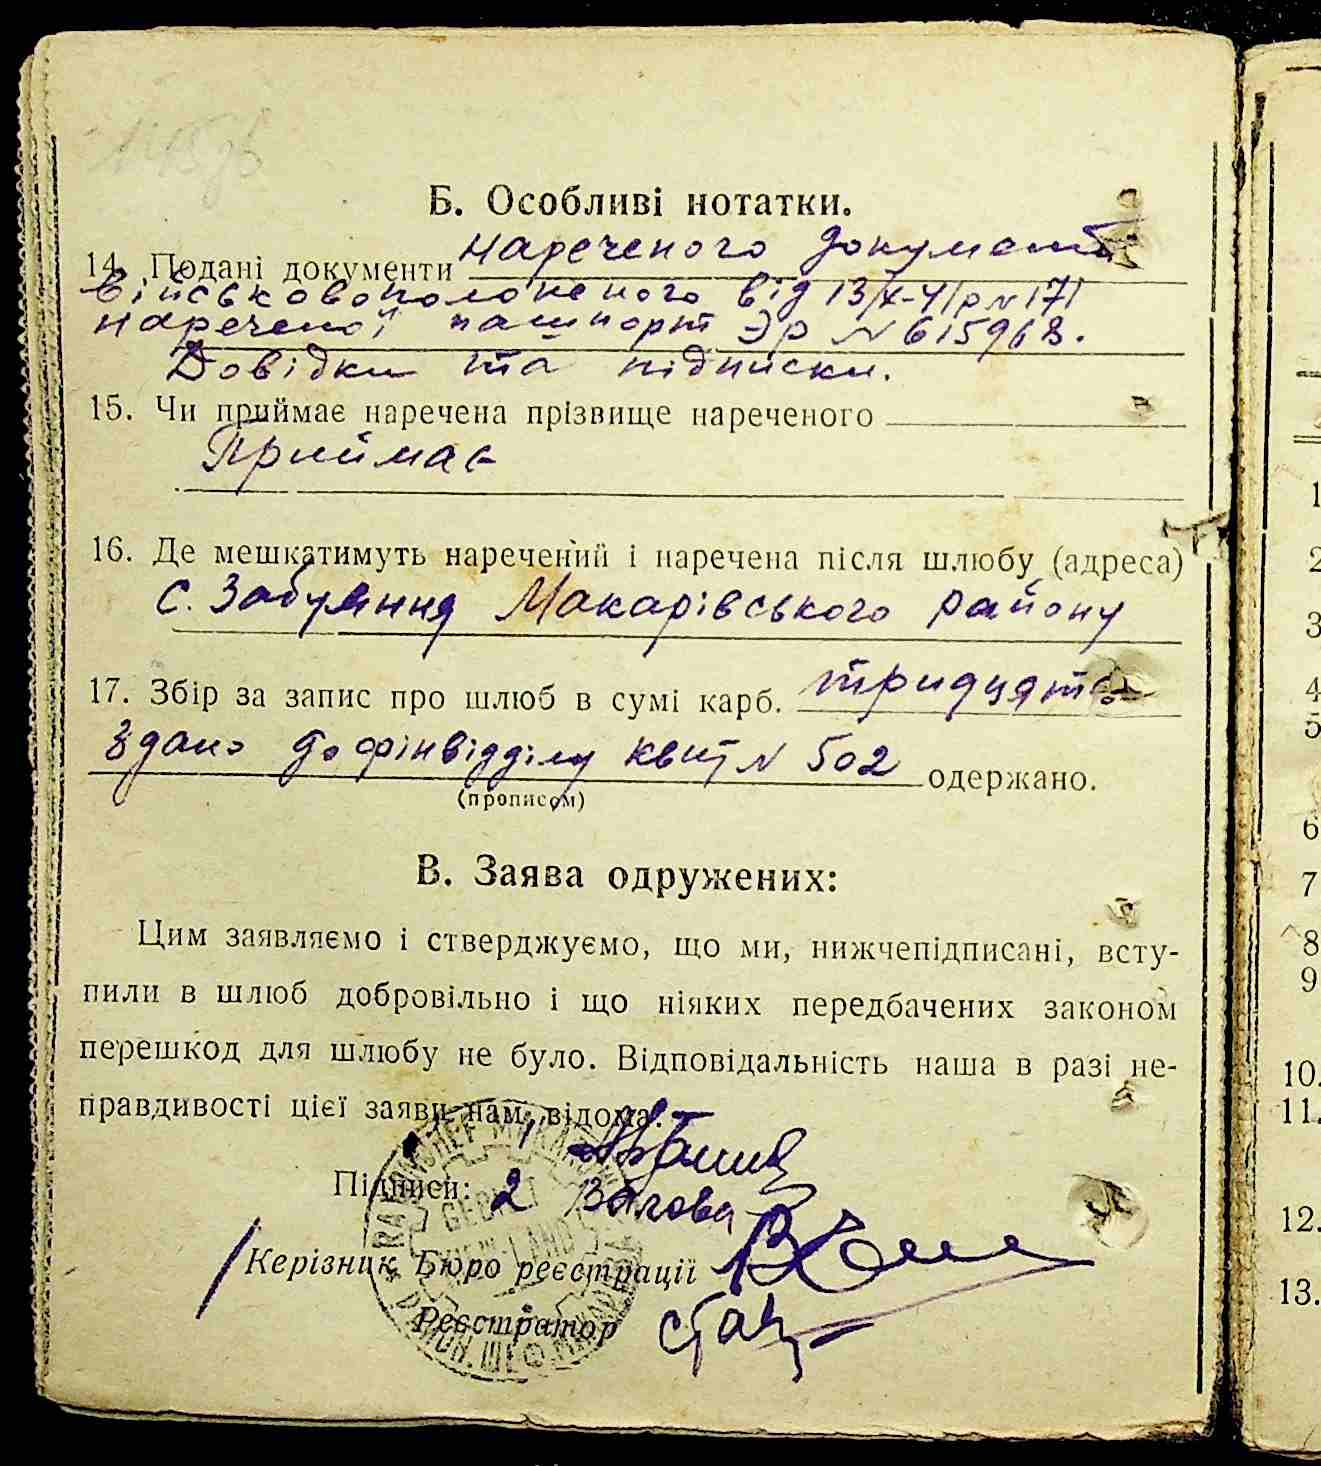 Б. Особливі нотатки.
14. Подані документи нареченого документ
військовополоненого від 13/X-41р № 171
нареченої пашпорт Эр № 615968.
Довідки та підписки.
15. Чи приймає наречена прізвище нареченого
Приймає
16. Де мешкатимуть наречений і наречена після шлюбу (адреса)
с. Забуяння Макарівського району
17. Збір за запис про шлюб в сумі карб. тридцять
Здано до фінвідділу квит № 502 одержано.
(прописом)
В. Заява одружених:
Цим заявляємо і стверджуємо, що ми, нижчепідписані, всту-
пили в шлюб добровільно і що ніяких передбачених законом
перешкод для шлюбу не було. Відповідальність наша в разі не-
правдивості цієї заяви нам відома.
1
Підписи: 2
Керівник Бюро реєстрації
Реєстратор
1
2
3
4
5
6
7
8
9
10.
11.
12.
13.